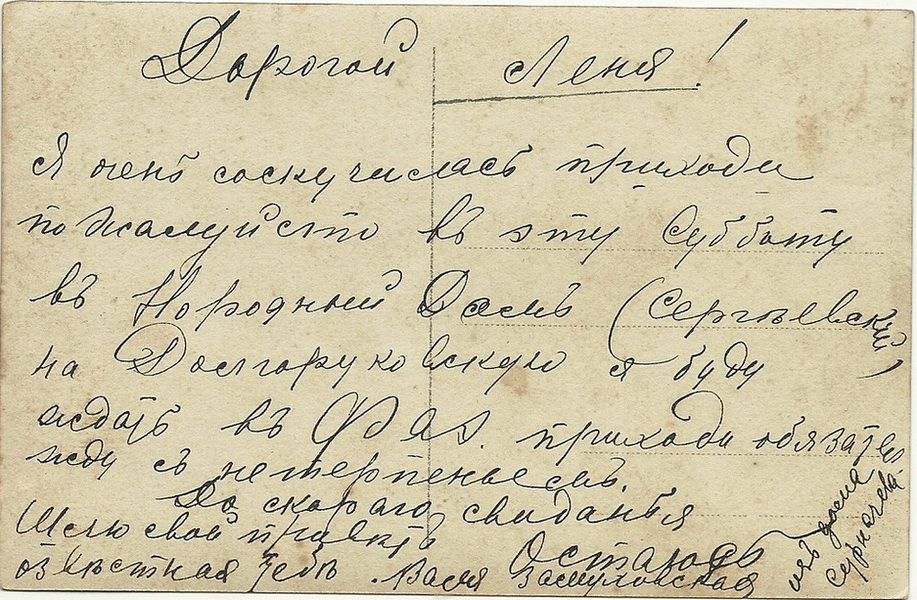 Дорогой Леня!
Я очень соскучилась приходи
пожалуйсто въ эту Субботу
въ Народный Домъ (Сергѣевский)
на Долгоруковскую я буду
ждать въ Фаэ. приходи обязател
жду съ нетерпеньемъ.
До скораго свиданья
Шлю свой приветъ
Остаюсь
извѣстная тебѣ Валя
изъ дома